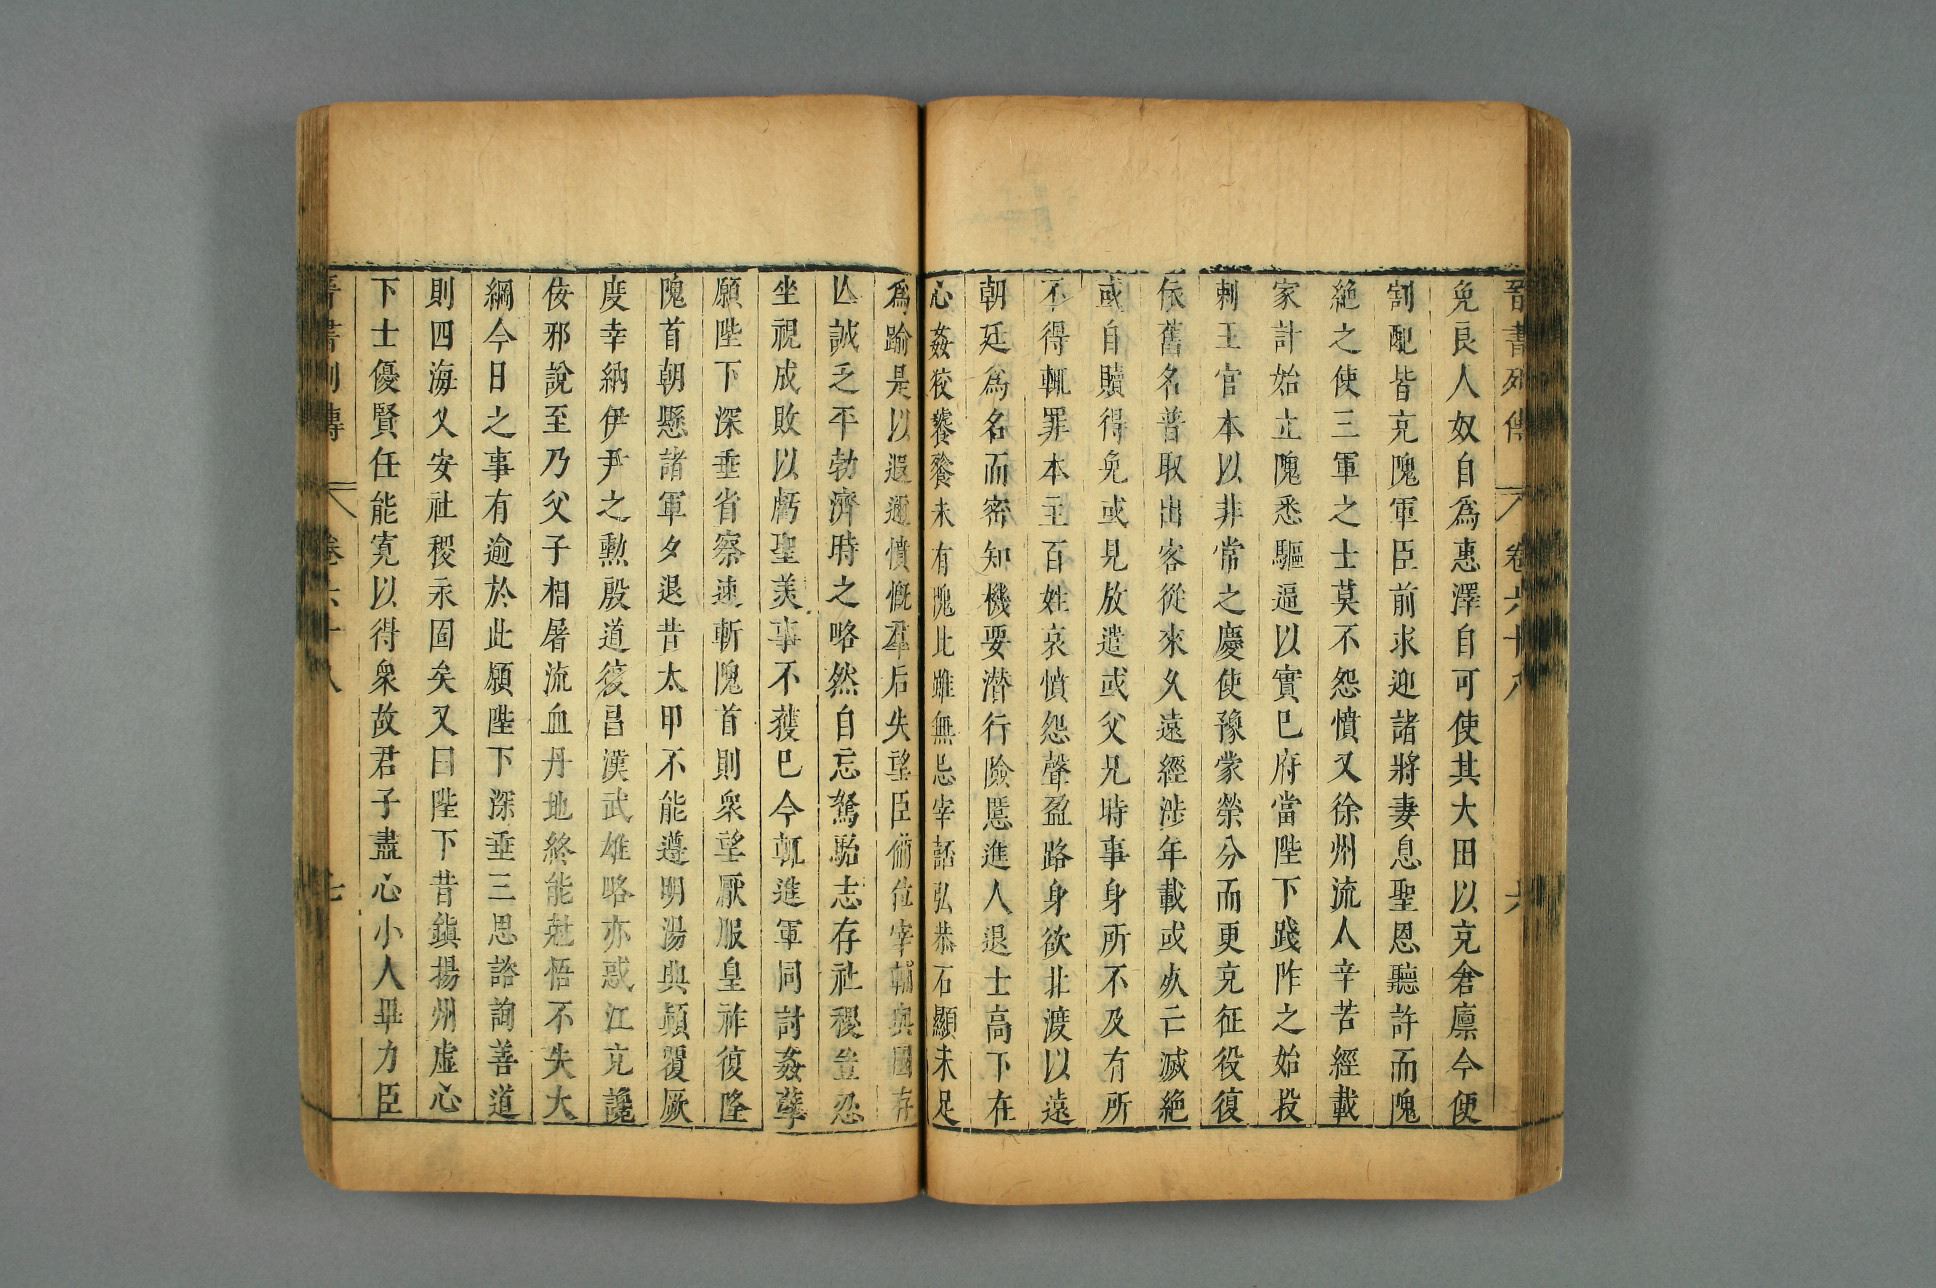 晉書列傳 卷六十八 六
免良人奴自爲惠澤自可使其大田以充倉廩今便
割配皆充隗軍臣前求迎諸將妻息聖恩聽許而隗
絶之使三軍之士莫不怨憤又徐州流人辛苦經載
家計始立隗悉驅逼以實巳府當陛下踐阼之始投
刺王官本以非常之慶使豫蒙榮分而更充征役復
依舊名普取出客從來久遠經涉年載或死亡滅絶
或自贖得免或見放遣或父兄時事身所不及有所
不得輒罪本主百姓哀憤怨聲盈路身欲北渡以遠
朝廷爲名而密知機要潜行險慝進人退士高下在
心姦狡饕餮未有隗比雖無忌宰嚭弘恭石顯未足
爲踰是以遐邇憤慨羣后失望臣備位宰輔與國存
亾誠乏平勃濟時之略然自忘駑駘志存社稷豈忍
坐視成敗以虧聖美事不獲巳今輒進軍同討姦孽
願陛下深垂省察速斬隗首則衆望厭服皇祚復隆
隗首朝懸諸軍夕退昔太甲不能遵明湯典顛覆厥
度幸納伊尹之勲殷道復昌漢武雄略亦惑江充讒
佞邪說至乃父子相屠流血丹地終能尅悟不失大
綱今日之事有逾於此願陛下深垂三思諮詢善道
則四海乂安社稷永固矣又曰陛下昔鎭揚州虛心
下士優賢任能寬以得衆故君子盡心小人畢力臣
晉書列傳 卷六十八 七